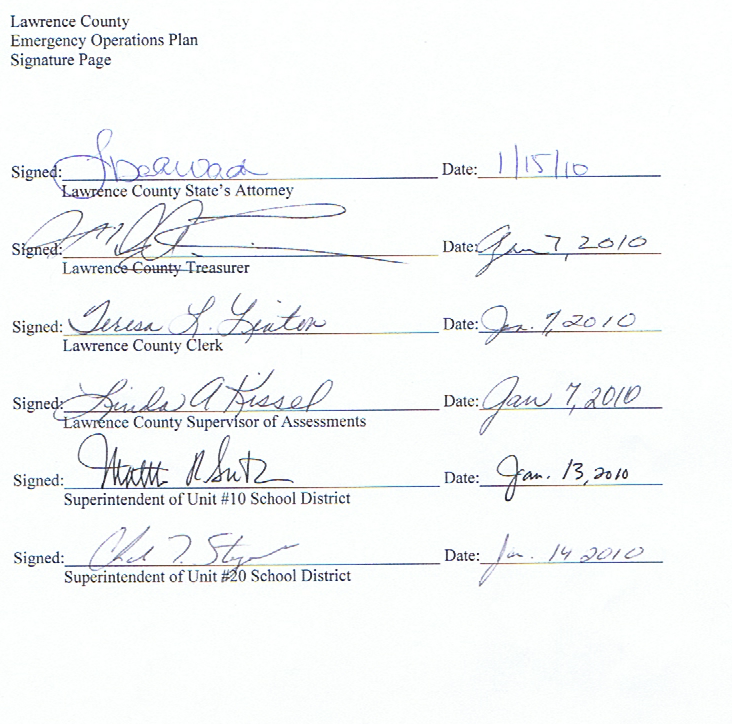 Lawrence County
Emergency Operations Plan
Signature Page
Signed: Date: 1/15/10
Lawrence County State's Attorney
Signed: Date: Jan 7, 2010
Lawrence County Treasurer
Signed: Teresa L. Linton Date: Jan. 7, 2010
Lawrence County Clerk
Signed: Linda A Kissel Date: Jan 7, 2010
Lawrence County Supervisor of Assessments
Signed: Date: Jan. 13, 2010
Superintendent of Unit #10 School District
Signed: Date: Jan. 14 2010
Superintendent of Unit #20 School District